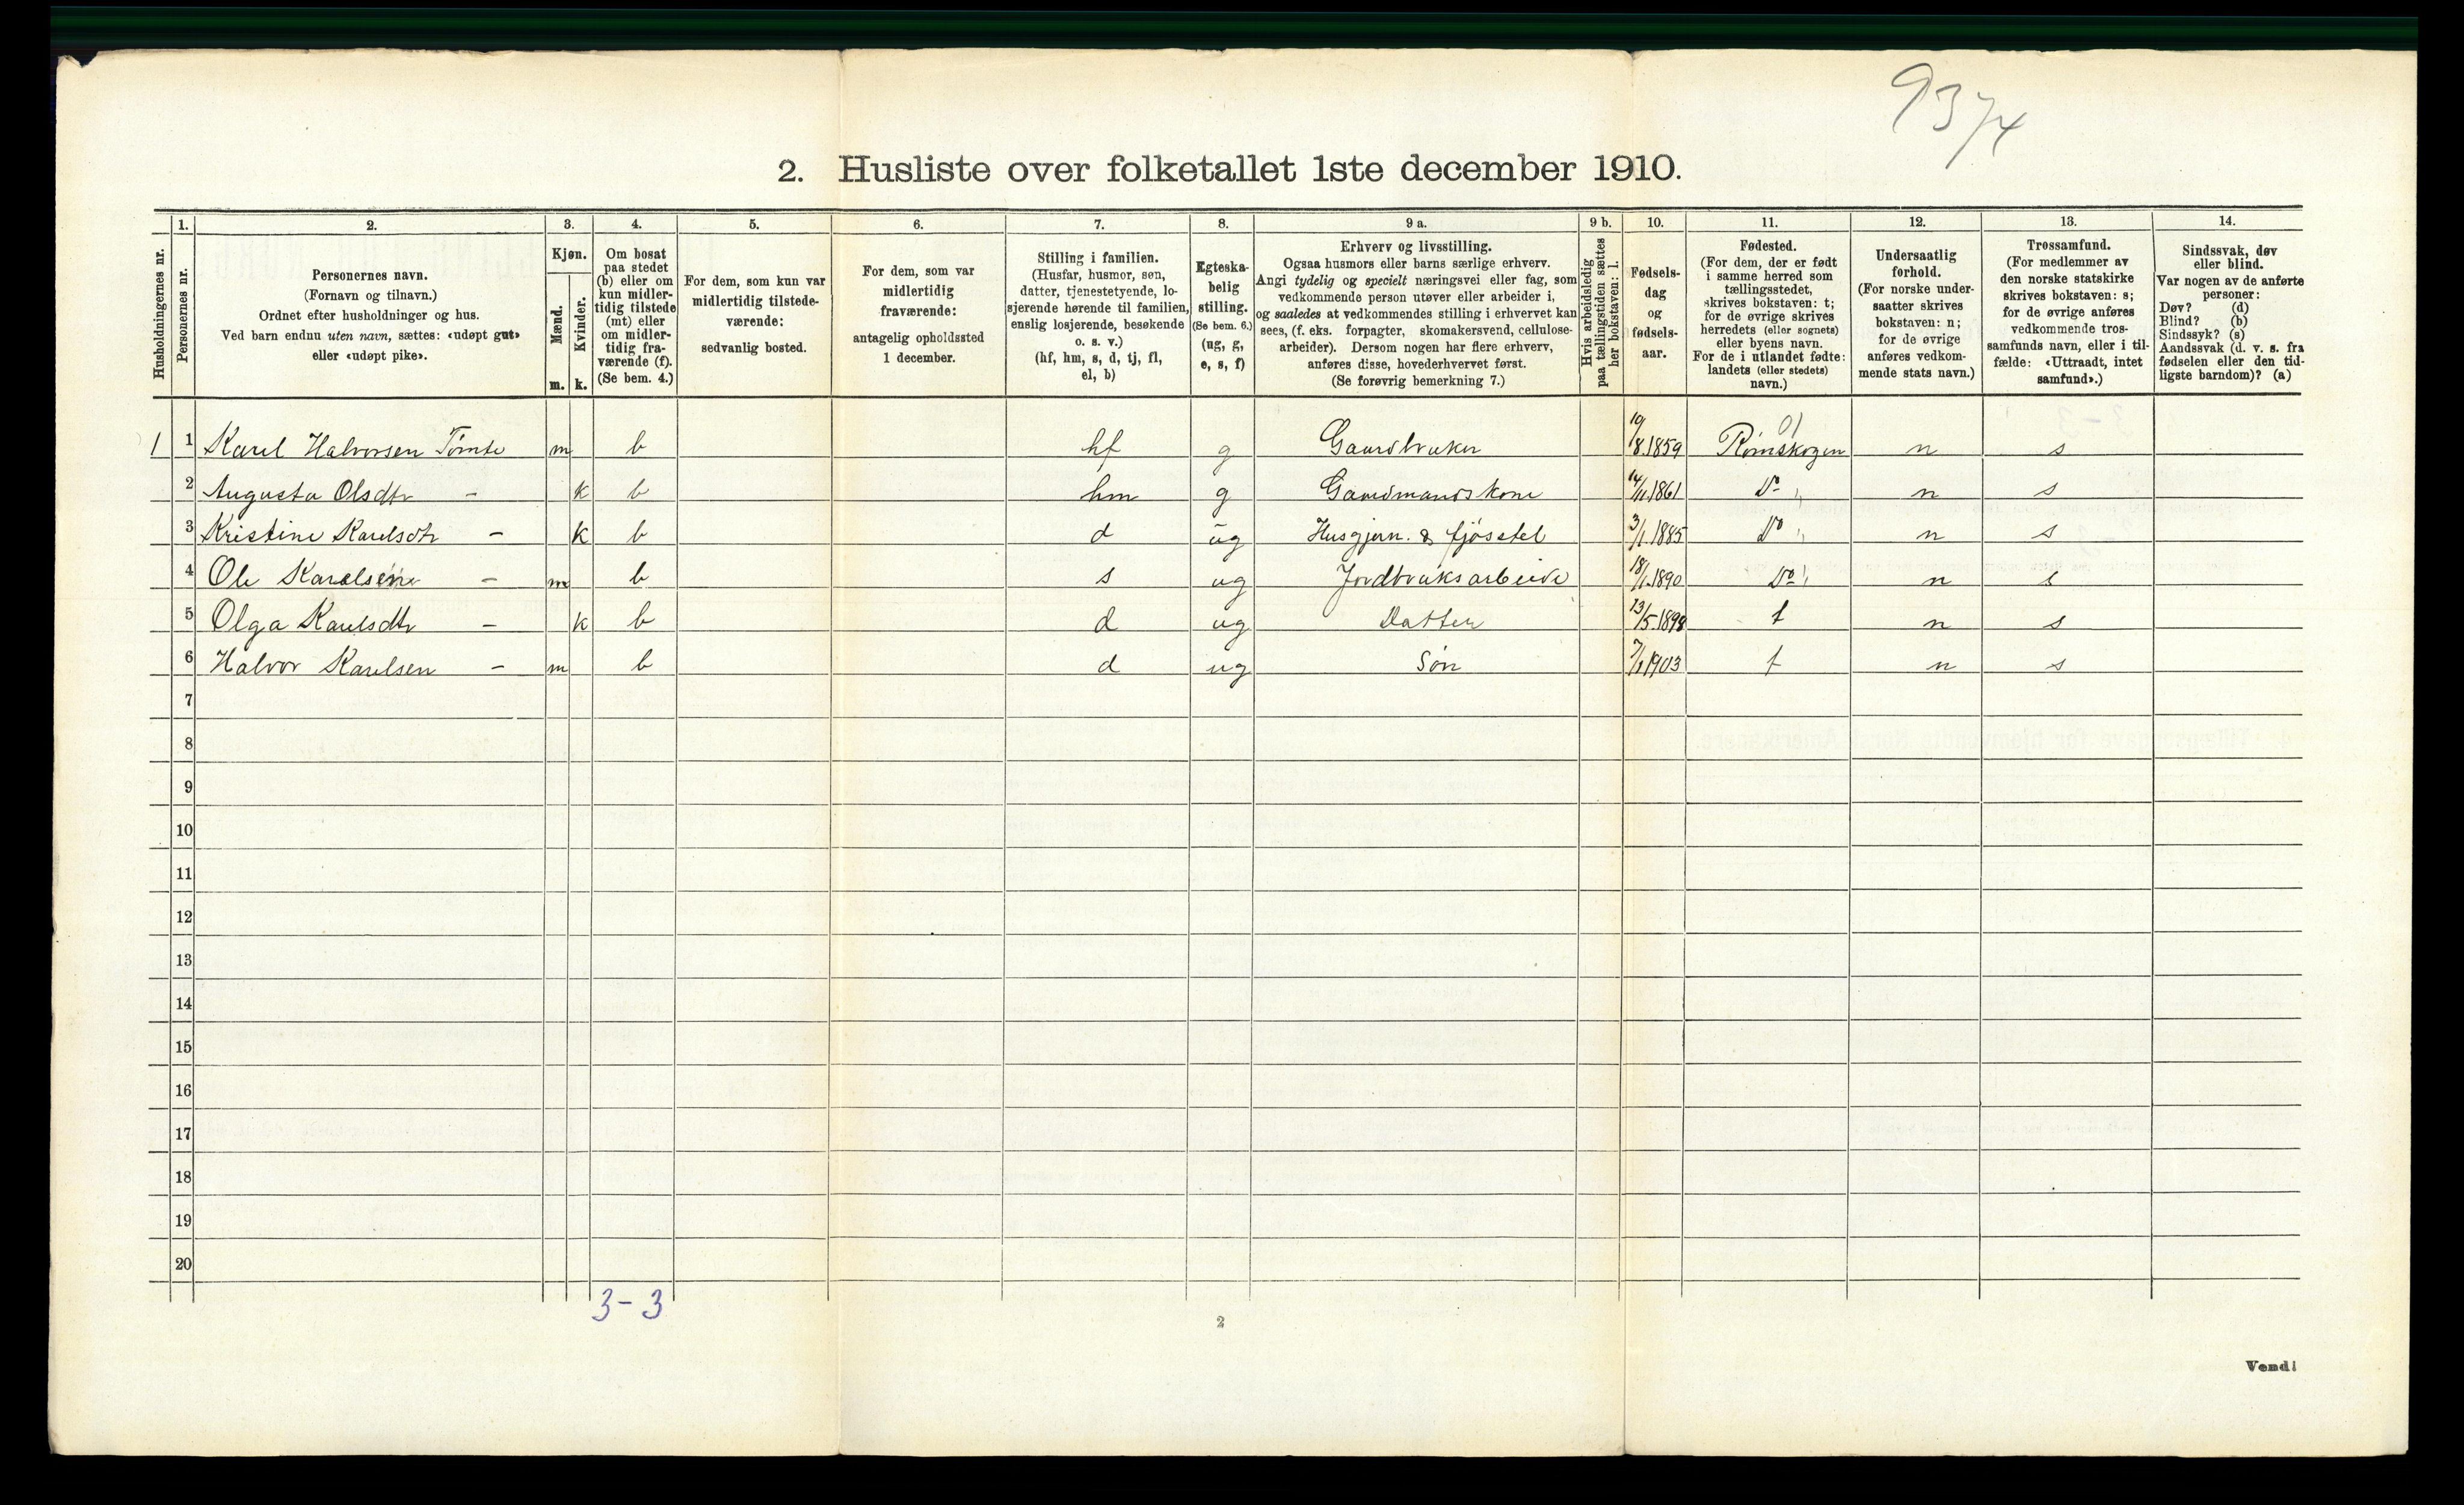 9374
2. Husliste over folketallet 1ste december 1910.
Husholdningernes nr.
1.
Personernes nr.
2.
Personernes navn.
(Fornavn og tilnavn.)
Ordnet efter husholdninger og hus.
Ved barn endnu uten navn, sættes: «udøpt gut»
eller «udøpt pike».
3.
Kjøn.
Mænd.
Kvinder.
m. k.
4.
Om bosat
paa stedet
(b) eller om
kun midler-
tidig tilstede
(mt) eller
om midler-
tidig fra-
værende (f).
(Se bem. 4.)
5.
For dem, som kun var
midlertidig tilstede-
værende:
sedvanlig bosted.
6.
For dem, som var
midlertidig
fraværende:
antagelig opholdssted
1 december.
7.
Stilling i familien.
(Husfar, husmor, søn,
datter, tjenestetyende, lo-
sjerende hørende til familien,
enslig losjerende, besøkende
o. s. v.)
(hf, hm, s, d, tj, fl,
el, b)
8.
Egteska-
belig
stilling.
(Se bem. 6.)
(ug, g,
e, s, f)
9 a.
Erhverv og livsstilling.
Ogsaa husmors eller barns særlige erhverv.
Angi tydelig og specielt næringsvei eller fag, som
vedkommende person utøver eller arbeider i,
og saaledes at vedkommendes stilling i erhvervet kan
sees, (f. eks. forpagter, skomakersvend, cellulose-
arbeider). Dersom nogen har flere erhverv,
anføres disse, hovederhvervet først.
(Se forøvrig bemerkning 7.)
9 b.
Hvis arbeidsledig
paa tællingstiden sættes
her bokstaven: l.
10.
Fødsels-
dag
og
fødsels-
aar.
11.
Fødested.
(For dem, der er født
i samme herred som
tællingsstedet,
skrives bokstaven: t;
for de øvrige skrives
herredets (eller sognets)
eller byens navn.
For de i utlandet fødte:
landets (eller stedets)
navn.)
12.
Undersaatlig
forhold.
(For norske under-
saatter skrives
bokstaven: n;
for de øvrige
anføres vedkom-
mende stats navn.)
13.
Trossamfund.
(For medlemmer av
den norske statskirke
skrives bokstaven: s;
for de øvrige anføres
vedkommende tros-
samfunds navn, eller i til-
fælde: «Uttraadt, intet
samfund».)
14.
Sindssvak, døv
eller blind.
Var nogen av de anførte
personer:
Døv? (d)
Blind? (b)
Sindssyk? (s)
Aandssvak (d. v. s. fra
fødselen eller den tid-
ligste barndom)? (a)
01
1 1 Karel Halvorsen Tømte m b hf g Gaardbruker 19/8.1859 Rømskogen n s
2 Augusta Olsdtr - k b hm g Gaardmandskone 14/11.1861 Do n s
3 Kristine Karelsdtr - k b d ug Husgjern. & fjøsstel 3/1.1885 Do n s
4 Ole Karelsen - m b s ug Jordbruksarbeide 18/1.1890 Do n s
5 Olga Karelsdtr - k b d ug Datter 13/5.1898 t n s
6 Halvor Karelsen - m b d ug Søn 7/1 1903 t n s
7
8
9
10
11
12
13
14
15
16
17
18
19
20
3-3
2
Vend!